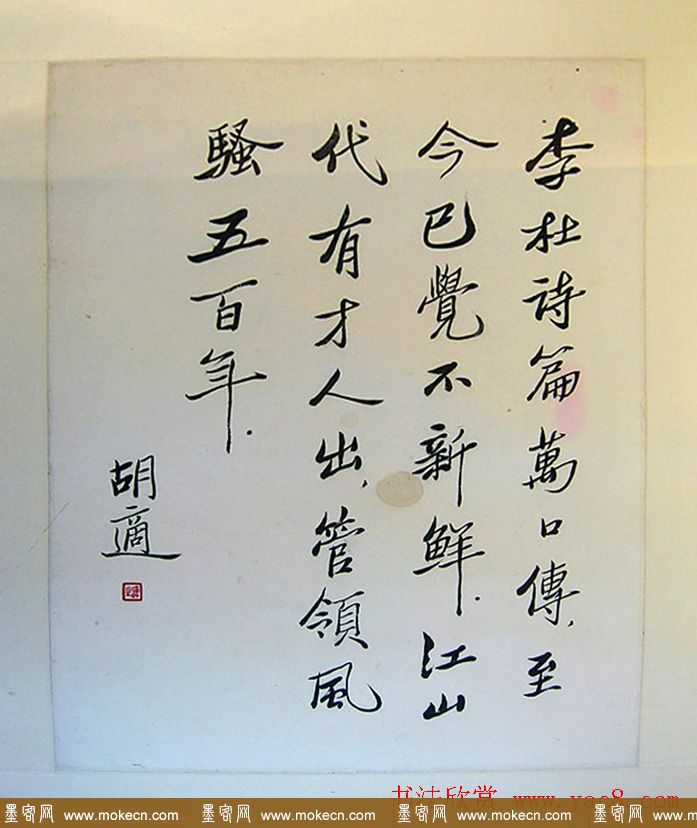 李杜詩篇萬口傳,至
今已覺不新鮮.江山
代有才人出,管領風
騷五百年.
胡適
书法欣赏 www.yac8.com
墨客网 www.mokecn.com 墨客网 www.mokecn.com 墨客网 www.mokecn.com 墨客网 www.mokecn.com